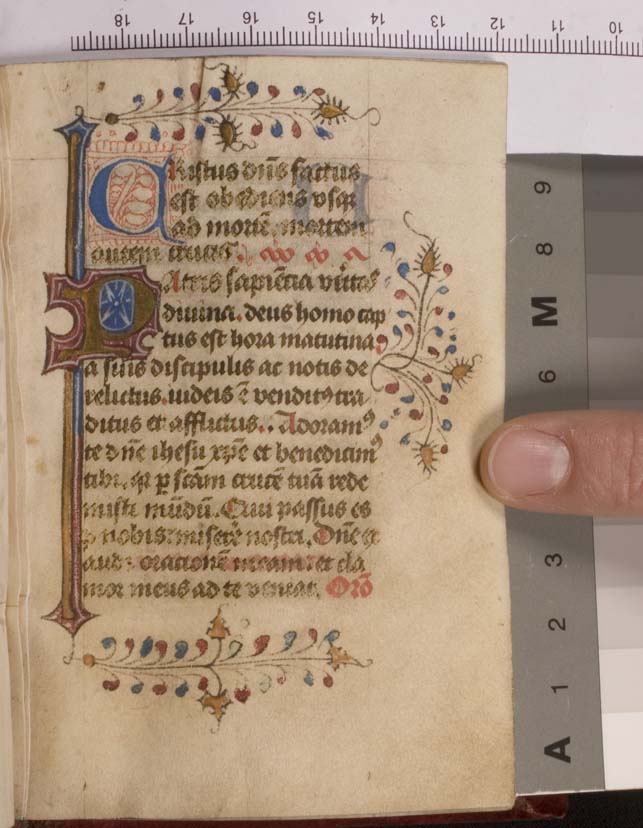 18 17 16 15 14 13 12 11 10
Cristus dn̄s factus
est obediens usq̄
ad mortē. mortem
autem crucis.
Patris sapiētia vitas
diuina. deus homo cap
tus est hora matutina.
a suis discipulis ac notis de
relictus. iudeis ē venditꝰ tra
ditus et afflictus. Adoramꝰ
te dn̄e ihesu xp̄e et benedicimꝰ
tibi. q̄ ꝑ sc̄am crucē tuā rede
misti mūdū. Qui passus es
p nobis: miserē nostri. Dn̄e ex
audi orationē meam: et cla
mor meus ad te veniat. Orō
9
8
M
6
3
2
1
A